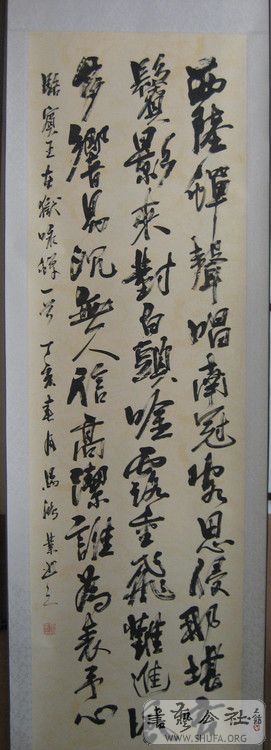 西陸蟬聲唱南冠客思侵那堪玄
鬢影來對白頭吟露重飛難進風
多響易沉無人信高潔誰為表予心
駱賓王在獄咏蟬一首 丁亥春月
書藝公社
WWW.SHUFA.ORG